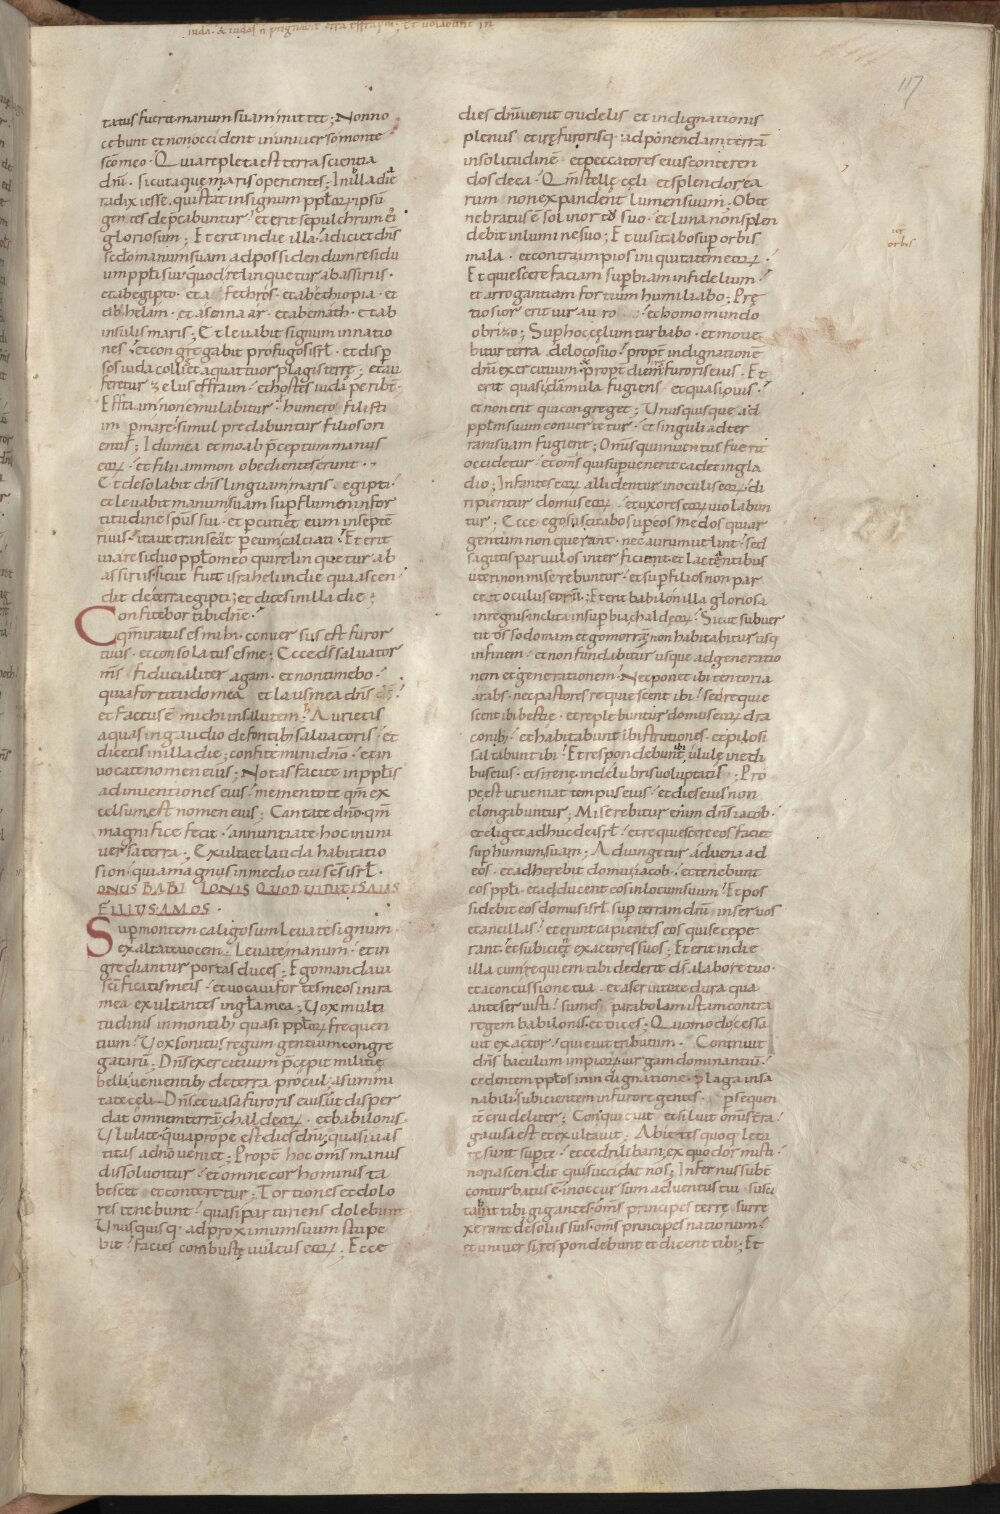 iuda · & iudas n̄ pugnabit c̄tra effraym ; Et uolabunt in
117
tatus fuerit manum suam mittet ; Non no
cebunt et non occident in uniuerso monte
sc̄o meo · Quia repleta est terra scientia
dn̄i · sicut aquę maris operientes ; In illa die
radix iesse · qui stat in signum pp̄lorꝝ ipsū
gentes dep̄cabuntur · et erit sepulchrum ei᾽
gloriosum ; Et erit in die illa · adiciet dn̄s
scd̄o manum suam ad possidendum residu
um pp̄li sui · quod relinquetur ab assiriis ·
et ab egipto · et a fethros · et ab ethiopia · et
ab helam · et a senna ar · et ab emath · et ab
insulis maris ; Et leuabit signum in natio
nes · et congregabit profugos isrl̄ · et disp̄
sos iuda colliget a quattuor plagis terrę ; et au
feretur zelus effraim · et hostes iuda peribt̄ ·
Effraim non emulabitur · humero filisti
im p mare · simul predabuntur filios ori
entis ; Idumea et moab p̄ceptum manus
eorꝝ · et filii ammon obedientes erunt ·
Et desolabit dn̄s linguam maris egipti ·
et leuabit manum suam sup̄ flumen in for
titudine sp̄us sui · et p̄cutiet eum in septē
riuis · ita ut transeāt p̄ eum calciati · Et erit
uia residuo pp̄lo meo qui relinquetur ab
assiriis · sicut fuit israhel in die qua ascen
dit de terra egipti ; et dices in illa die ;
Confitebor tibi dn̄e ·
qm̄ iratus es mihi · conuersus est furor
tuus · et consolatus es me ; Ecce d̄s saluator
m̄s · fiducialiter agam · et non timebo ·
quia fortitudo mea et laus mea dn̄s
et factus ē michi in salutem · Aurietis
aquas in gaudio de fontib; saluatoris · et
dicetis in illa die ; confitemini dn̄o · et in
uocate nomen eius ; Notas facite in pp̄lis
adinuentiones eius · mementote qm̄ ex
celsum est nomen eius ; Cantate dn̄o · qm̄
magnifice fecit · annuntiate hoc in uni
uersa terra ; Exulta et lauda habitatio
sion · quia magnus in medio tui sc̄s isrl̄ ·
ONUS BABILONIS QUOD UIDIT ISAIAS
FILIUS AMOS ·
Sup̄ montem caligosum leuate signum ·
exaltate uocem · Leuate manum · et in
grediantur portas duces ; Ego mandaui
sc̄ificatis meis · et uocaui fortes meos in ira
mea exultantes in gl̄a mea ; Uox multi
tudinis in montib; quasi pp̄lorꝝ frequen
tium · Uox sonitus regum gentium congre
gatarū ; Dn̄s exercituum p̄cepit militię
belli · uenientib; de terra procul · a summi
tate cęli · Dn̄s et uasa furoris eius · ut disper
dat omnem terrā chaldeorꝝ · et babilonis ·
Ululate · quia prope est dies dn̄i ; quasi uas
titas a dn̄o ueniet ; Propt̄ hoc om̄s manus
dissoluentur · et omne cor hominis ta
bescet et conteretur ; Tortiones et dolo
res tenebunt · quasi parturiens dolebunt
Unusquisq · ad proximum suum stupe
bit · facies combustę uultus eorꝝ ; Ecce
dies dn̄i uenit crudelis et indignationis
plenus et irę furorisq · ad ponendam terrā
in solitudinē et peccatores eius conteren
dos de ea · Qm̄ stellę cęli et splendor ea
rum non expandent lumen suum ; Obte
nebratus ē sol in ortu suo · et luna non splen
debit in lumine suo ; Et uisitabo sup̄ orbis
iet
orbis
mala · et contra impios iniquitatem eorꝝ ·
Et quiescere faciam sup̄biam infidelium ·
et arrogantiam fortium humiliabo ; Prę
tiosior erit uir auro et homo mundo
obrizo ; Sup̄ hoc cęlum turbabo · et moue
bitur terra de loco suo · propt̄ indignationē
dn̄i exercituum · propt̄ diem furoris eius · Et
erit quasi damula fugiens et quasi ouis ·
et non erit qui congreget ; Unusquisque ad
pp̄lm suum conuertetur · et singuli ad ter
ram suam fugient ; Om̄is qui inuentus fuerit
occidetur · et om̄s qui sup̄uenerit cadet in gla
dio ; Infantes eorꝝ allidentur in oculis eorꝝ · di
ripientur domus eorꝝ · et uxores eorꝝ uiolabun
tur ; Ecce ego suscitabo sup̄ eos medos qui ar
gentum non querant · nec aurum uelint · sed
sagittis paruulos interficient · et lactentibus
uteri non miserebuntur · et sup̄ filios non par
cet oculus eorū · Et erit babilon illa gloriosa
in regnis · inclita in sup̄bia chaldeorꝝ · Sicut subuer
tit d̄s sodomam et gomorrā non habitabitur usq
in finem · et non fundabitur usque ad generatio
nem et generationem · Nec ponet ibi tentoria
arabs · nec pastores requiescent ibi · sed requie
scent ibi bestie · et replebuntur domus eorꝝ dra
conib; · et habitabunt ibi strutiones · et pilosi
saltabunt ibi · Et respondebunt ibi ululę in edi
bus eius · et sirenę in delubris uoluptatis ; Pro
pe est ut ueniat tempus eius · et dies eius non
elongabuntur ; Miserebitur enim dn̄s iacob ·
et eliget adhuc de isrl̄ · et requiescere eos faciet
sup̄ humum suam ; Adiungetur aduena ad
eos · et adherebit domui iacob · et tenebunt
eos pp̄li · et adducent eos in locum suum · Et pos
sidebit eos domus isrl̄ sup̄ terram dn̄i in seruos
et ancillas · et erunt capientes eos qui se cepe
rant · et subicięt exactores suos ; Et erit in die
illa cum requiem tibi dederit d̄s a labore tuo ·
et a concussione tua · et a seruitute dura qua
ante seruisti · sumes parabolam istam contra
regem babilonis · et dices ; Quomodo cessa
uit exactor · quieuit tributum · Contriuit
dn̄s baculum impiorꝝ · uirgam dominantiū ·
cedentem pp̄los in indignatione · plaga insa
nabili · subicientem in furore gentes · p̄sequen
tē crudeliter ; Conquieuit et siluit om̄is t̄ra ·
gauisa est et exultauit ; Abietes quoq; letate
sunt sup̄ te · et cedri libani ; ex quo dormisti ·
non ascendit qui succidat nos ; Infernus subt̄
conturbatus ē · in occursum aduentus tui susci
tauit tibi gigantes · om̄s principes terrę surre
xerunt de soliis suis · om̄s principes nationum ·
et uniuersi respondebunt et dicent tibi ; Et